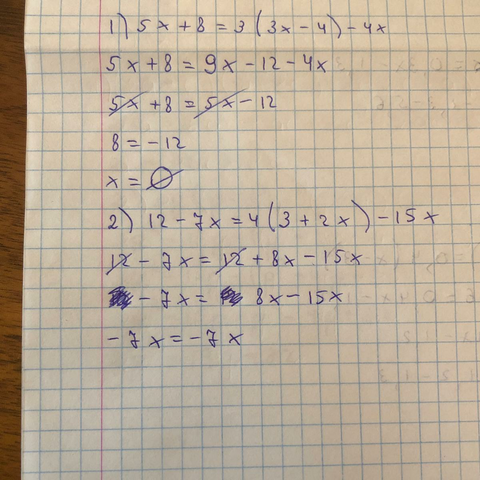 1) 5x + 8 = 3(3x - 4) - 4x
5x + 8 = 9x - 12 - 4x
5x + 8 = 5x - 12
8 = -12
x = ∅
2) 12 - 7x = 4(3 + 2x) - 15x
12 - 7x = 12 + 8x - 15x
- 7x = 8x - 15x
- 7x = - 7x